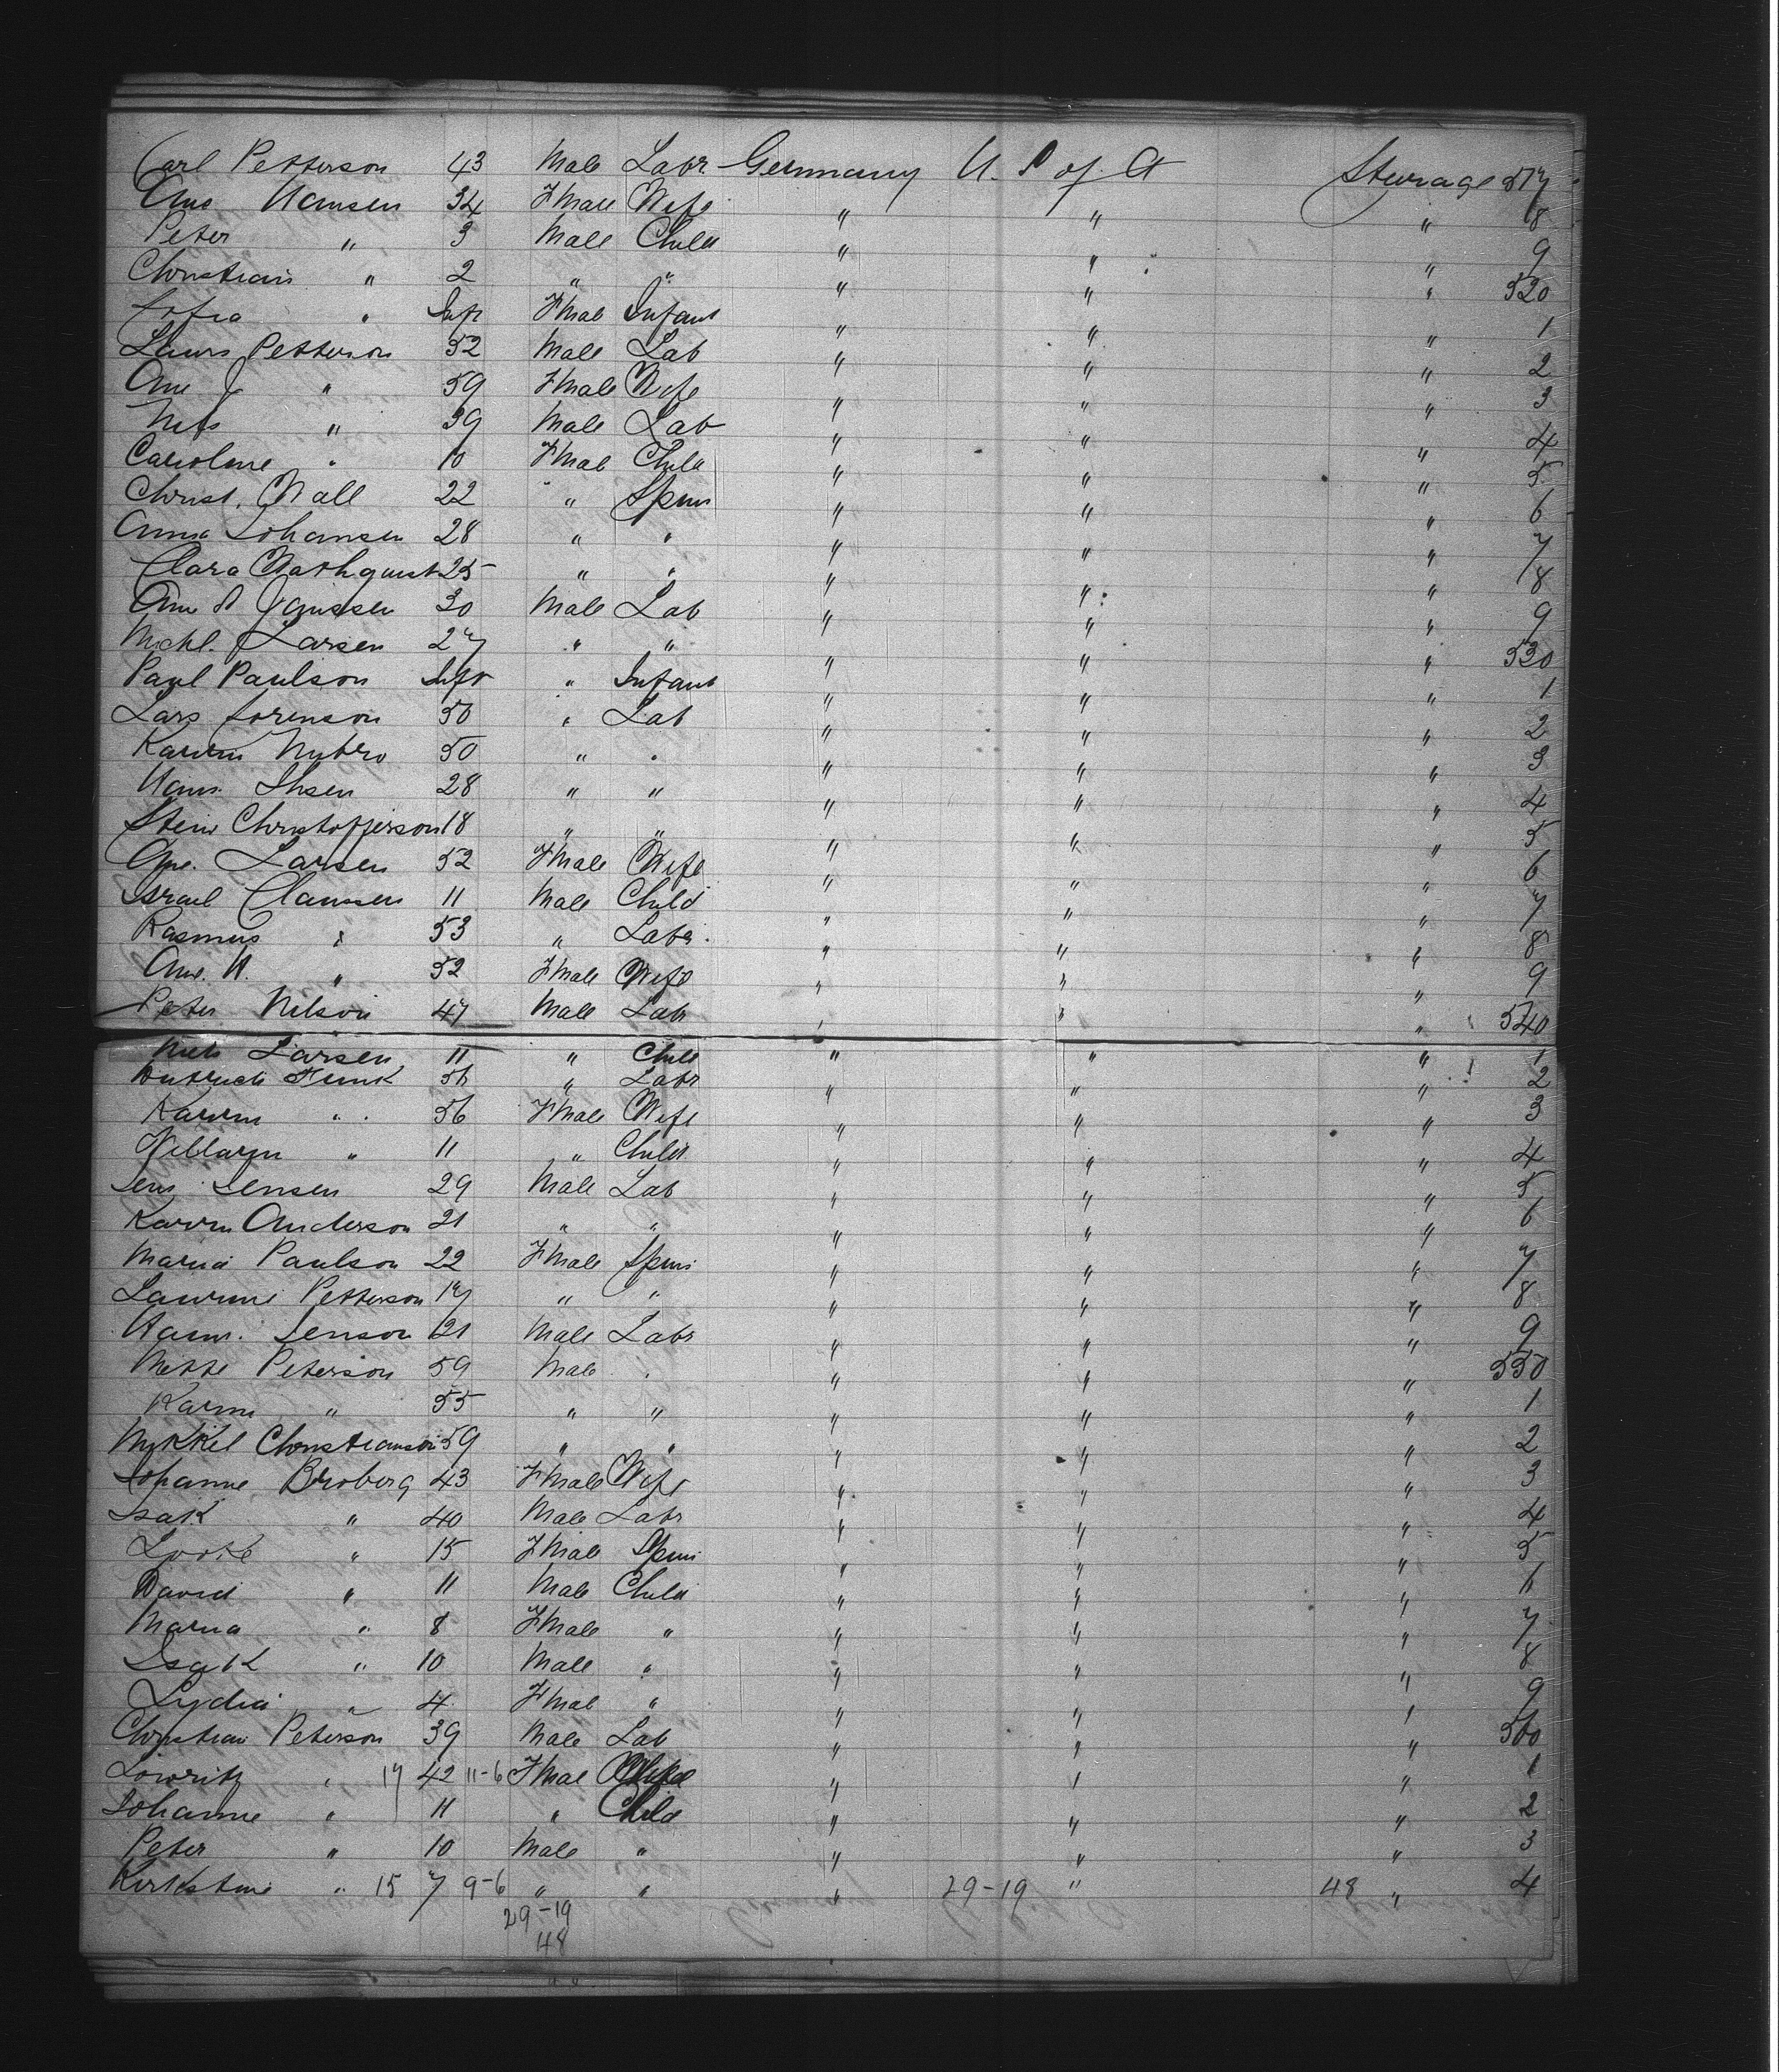 Carl Petterson 43 Male Labr Germany U. S of A Steerage 517
Ane Hansen 34 Fmale Wife " " " 8
Peter " 3 Male Child " " " 9
Christian " 2 " " " " " 520
Sofia " Inft Fmal Infant " " " 1
Laurs Petterson 52 Male Lab " " " 2
Ane J " 59 Fmale Wife " " " 3
Nils " 39 Male Lab " " " 4
Caroline " 10 Fmal Child " " " 5
Christ. Wall 22 " Spin " " " 6
Anna Johansen 28 " " " " " 7
Clara Wathquist 25 " " " " " 8
Ane S Janssen 30 Male Lab " " " 9
Mickl. Larsen 27 " " " " " 530
Paul Paulson Inft " Infant " " " 1
Lars Sorenson 50 " Lab " " " 2
Karrin Nybro 50 " " " " " 3
Hans Ihsen 28 " " " " " 4
Stein Christofferson 18 " " " " " 5
Ane. Larsen 52 Fmale Wife " " " 6
Israel Claussen 11 Male Child " " " 7
Rasmus " 53 " Labr. " " " 8
Ane. H. " 52 Fmale Wife " " " 9
Peter Nelson 47 Male Labr " " " 540
Niels Larsen 11 " Child " " " 1
Dietrich Funk 56 " Labr " " " 2
Karrin " 56 Fmale Wife " " " 3
" 11 " Child " " " 4
Jens Jensen 29 Male Lab " " " 5
Karrn Anderson 21 " " " " " 6
Maria Paulson 22 Fmale Spin " " " 7
Laurine Petterson 17 " " " " " 8
Hans. Jenson 21 Male Labr " " " 9
Mette Peterson 59 Male " " " " 550
Karin " 55 " " " " " 1
Mykkel Christianson 59 " " " " " 2
Johanne Broberg 43 Fmale Wife " " " 3
Isak " 40 Male Labr " " " 4
" 15 Fmale Spin " " " 5
David " 11 Male Child " " " 6
Maria " 8 Fmale " " " " 7
Isak " 10 Male " " " " 8
Lydia " 4 Fmal " " " " 9
Christian Peterson 39 Male Lab " " " 560
Lowritz " 17 42 11-6 Fmal " " " 1
Johanne " 11 " Child " " " 2
Peter " 10 Male " " " " 3
Kirkstine " 15 7 9-6 " " " 29-19 " 48 " 4
29-19
48